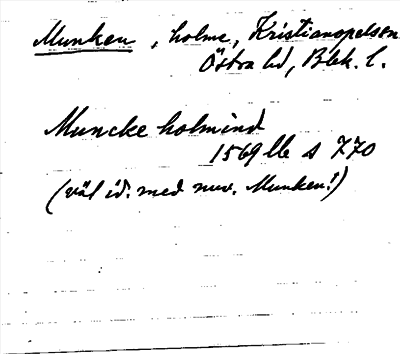 Munken, holme, Kristianopelssn
Östra hd, Blek. l.
Muncke holmind
1569 lb s 770
(väl id. med nuv. Munken!)